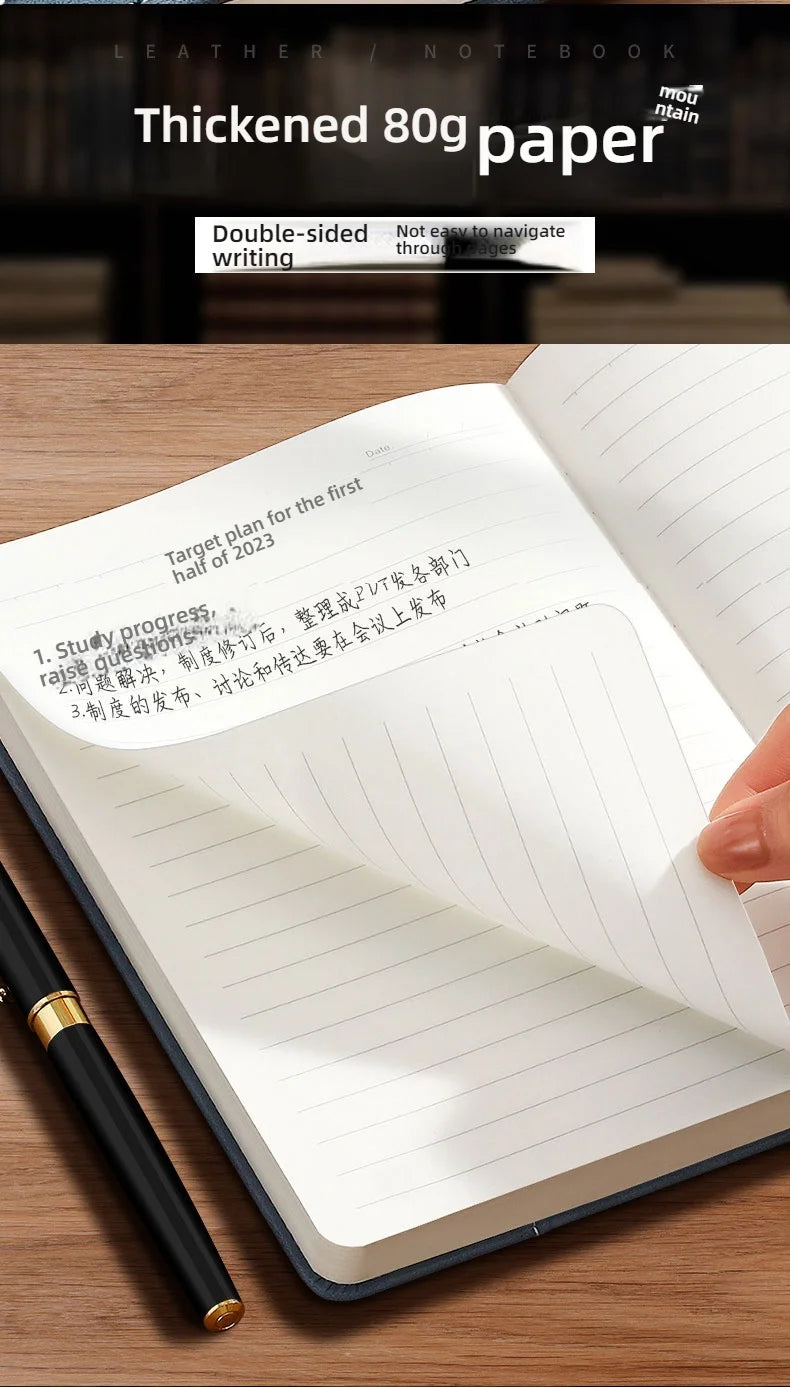 LEATHER / NOTEBOOK
Thickened 80g paper
mou
ntain
Double-sided
writing
Not easy to navigate
through pages
Date.
Target plan for the first
half of 2023
1. Study progress,
raise questions
整理成PVT发各部门
2.问题解决，制度修订后，
3.制度的发布、讨论和传达要在会议上发布